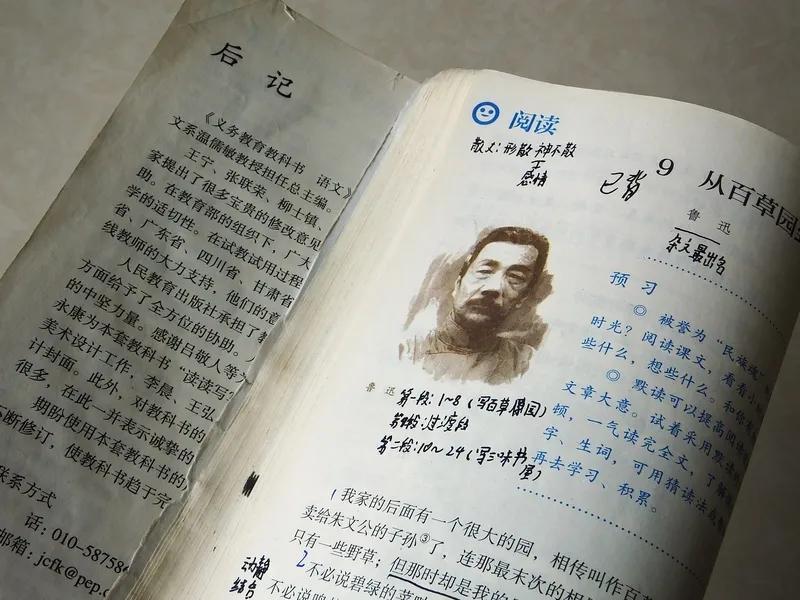 后 记
《义务教育教科书 语文》
文系温儒敏教授担任总主编。
王宁、张联荣、柳士镇、
家提出了很多宝贵的修改意见
助。在教育部的组织下，广大
学的适切性。在试教试用过程
省、广东省、四川省、甘肃省
线教师的大力支持，他们的意
方面给予了全方位的协助。
人民教育出版社承担了教
的中坚力量。感谢吕敬人等为
永康为本套教科书“读读写
美术设计工作，李晨、王弘
计封面。此外，对教科书的
很多，在此一并表示诚挚的
期盼使用本套教科书的
不断修订，使教科书趋于完
联系方式
话：010-58758
邮箱：jcfk@pep.c
阅读
散文：形散神不散
感情
已背
9 从百草园
鲁 迅
杂文最出名
预 习
◎ 被誉为“民族魂”
时光？阅读课文，看看小
些什么，想些什么。和你
◎ 默读可以提高阅读
文章大意。试着采用默读
顿，一气读完全文，了解
字、生词，可用猜读法
再去学习、积累。
鲁 迅
第一段：1~8（写百草园）
过渡段
第二段：10~24（写三味书屋）
1 我家的后面有一个很大的园，相传叫作百
卖给朱文公的子孙③了，连那最末次的相
只有一些野草；但那时却是我的
动静结合
2 不必说碧绿的菜
不必说鸣